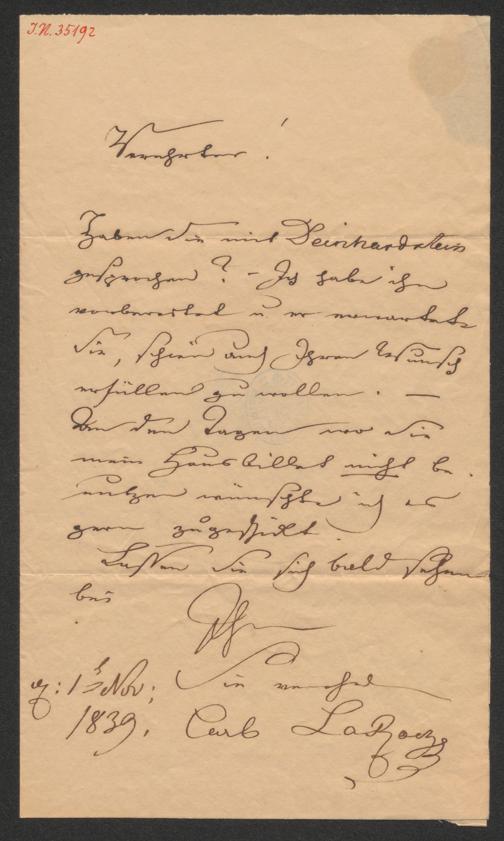 J.N. 35192
Verehrter!
Haben Sie mit Deinhardstein
gesprochen? – Ich habe ihn
vorbereitet u er erwartete
Sie, schien auch Ihren Wunsch
erfüllen zu wollen. —
An den Tagen wo Sie
mein Hausbillet nicht be-
nutzen wünschte ich es
gern zugeschickt.
Lassen Sie sich bald sehen
bei
Ihrem
Sie
1t Nov:
1839. Carl LaRoche